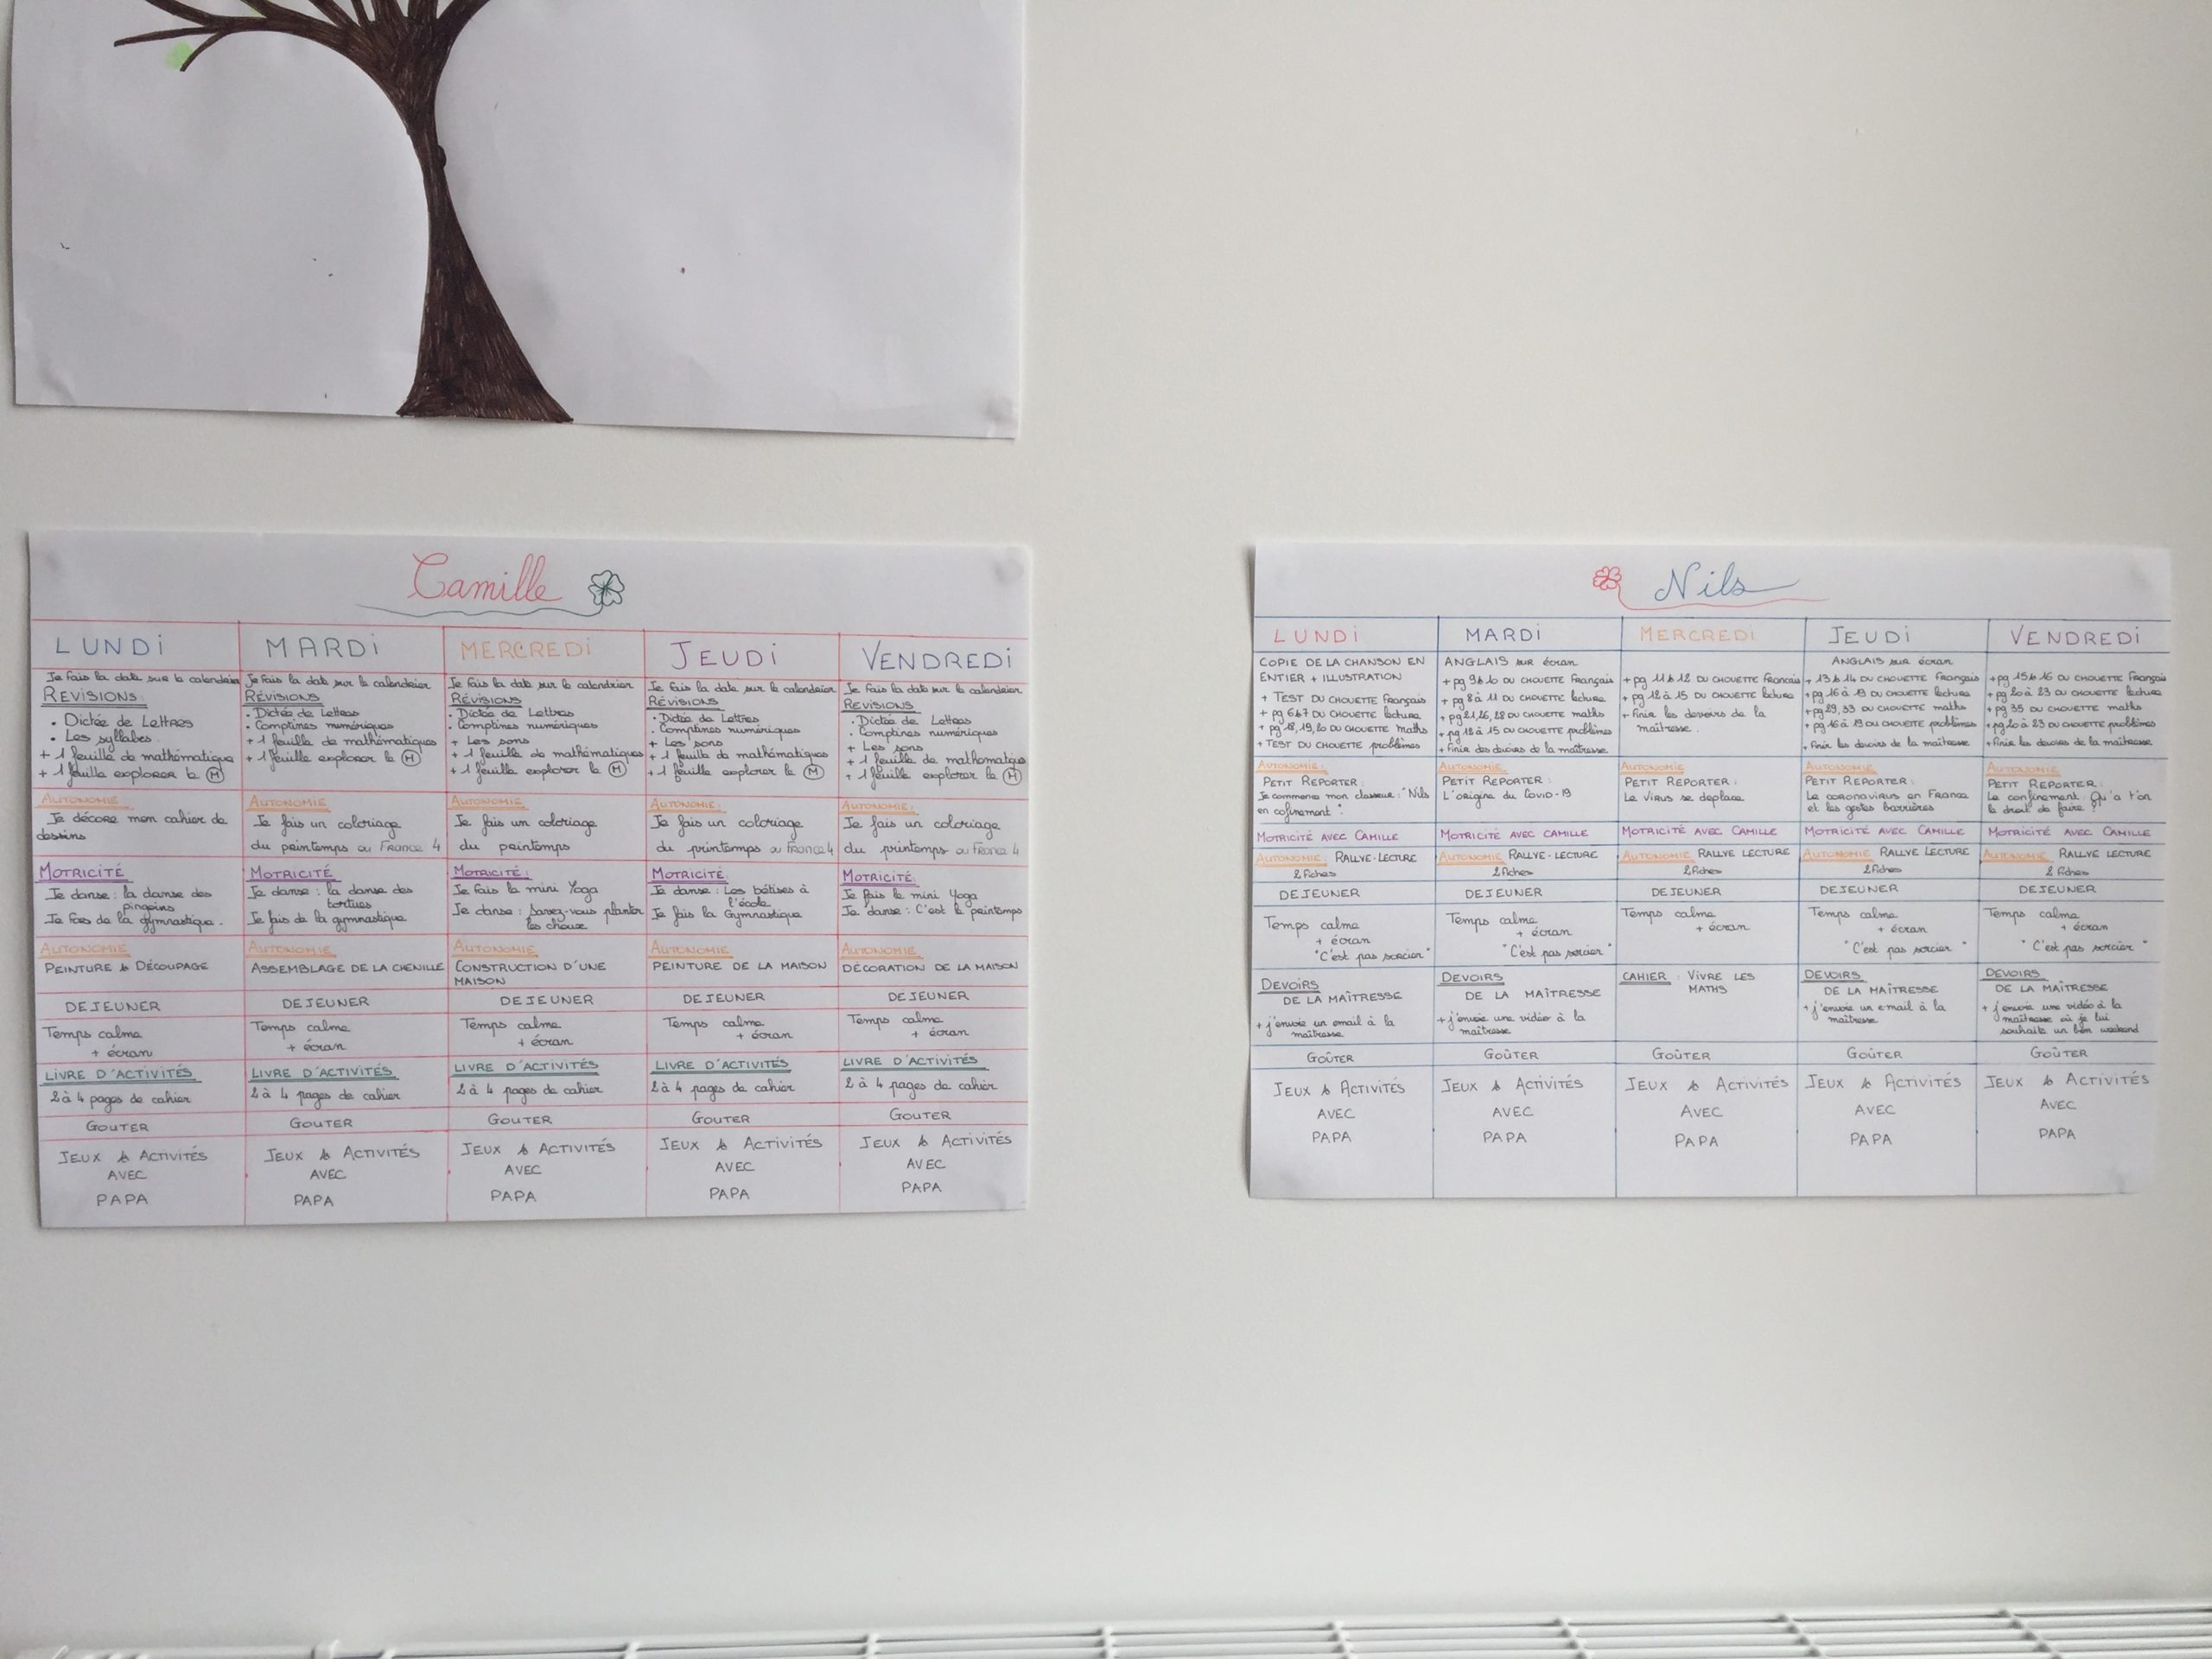 Camille
LUNDI
Je fais la date sur le calendrier
REVISIONS:
• Dictée de Lettres
• Les syllabes
+ 1 feuille de mathématique
+ 1 feuille explorer le M
AUTONOMIE
Je décore mon cahier de
dessins
MOTRICITÉ
Je danse : la danse des
pingoins
Je fais de la gymnastique.
AUTONOMIE
PEINTURE & DÉCOUPAGE
DEJEUNER
Temps calme
+ écran
LIVRE D'ACTIVITÉS
2 à 4 pages de cahier
GOUTER
JEUX & ACTIVITÉS
AVEC
PAPA
MARDI
Je fais la date sur le calendrier
RÉVISIONS
• Dictée de Lettres
• Comptines numériques
+ 1 feuille de mathématiques
+ 1 feuille explorer le M
AUTONOMIE
Je fais un coloriage
du printemps ou France 4
MOTRICITÉ
Je danse : la danse des
tortues
Je fais de la gymnastique
AUTONOMIE
ASSEMBLAGE DE LA CHENILLE
DEJEUNER
Temps calme
+ écran
LIVRE D'ACTIVITÉS
2 à 4 pages de cahier
GOUTER
JEUX & ACTIVITÉS
AVEC
PAPA
MERCREDI
Je fais la date sur le calendrier
RÉVISIONS
• Dictée de Lettres
• Comptines numériques
+ Les sons
+ 1 feuille de mathématiques
+ 1 feuille explorer le M
AUTONOMIE
Je fais un coloriage
du printemps
MOTRICITÉ :
Je fais le mini Yoga
Je danse : Savez-vous planter
les choux
AUTONOMIE
CONSTRUCTION D'UNE
MAISON
DEJEUNER
Temps calme
+ écran
LIVRE D'ACTIVITÉS
2 à 4 pages de cahier
GOUTER
JEUX & ACTIVITÉS
AVEC
PAPA
JEUDI
Je fais la date sur le calendrier
RÉVISIONS
• Dictée de Lettres
• Comptines numériques
+ Les sons
+ 1 feuille de mathématiques
+ 1 feuille explorer le M
AUTONOMIE:
Je fais un coloriage
du printemps ou France 4
MOTRICITÉ:
Je danse : Les bêtises à
l'école
Je fais la Gymnastique
AUTONOMIE
PEINTURE DE LA MAISON
DEJEUNER
Temps calme
+ écran
LIVRE D'ACTIVITÉS
2 à 4 pages de cahier
GOUTER
JEUX & ACTIVITÉS
AVEC
PAPA
VENDREDI
Je fais la date sur le calendrier
REVISIONS
• Dictée de Lettres
• Comptines numériques
+ Les sons
+ 1 feuille de mathématique
+ 1 feuille explorer le M
AUTONOMIE:
Je fais un coloriage
du printemps ou France 4
MOTRICITÉ:
Je fais le mini Yoga
Je danse : C'est le printemps
AUTONOMIE
DÉCORATION DE LA MAISON
DEJEUNER
Temps calme
+ écran
LIVRE D'ACTIVITÉS
2 à 4 pages de cahier
GOUTER
JEUX & ACTIVITÉS
AVEC
PAPA
Nils
LUNDI
COPIE DE LA CHANSON EN
ENTIER + ILLUSTRATION
+ TEST DU CHOUETTE Français
+ pg 6&7 DU CHOUETTE lecture
+ pg 18, 19, 20 DU CHOUETTE maths
+ TEST DU CHOUETTE problèmes
AUTONOMIE:
PETIT REPORTER:
Je commence mon classeur: "Nils
en cofinement".
MOTRICITÉ AVEC CAMILLE
AUTONOMIE: RALLYE-LECTURE
2 fiches
DEJEUNER
Temps calme
+ écran
"C'est pas sorcier"
DEVOIRS
DE LA MAÎTRESSE
+ j'envoie un email à la
maîtresse
GOÛTER
JEUX & ACTIVITÉS
AVEC
PAPA
MARDI
ANGLAIS sur écran
+ pg 9&10 DU CHOUETTE Français
+ pg 8 à 11 DU CHOUETTE lecture
+ pg 21, 26, 28 DU CHOUETTE maths
+ pg 12 à 15 DU CHOUETTE problèmes
+ finir des devoirs de la maîtresse
AUTONOMIE:
PETIT REPORTER:
L'origine du COVID-19
MOTRICITÉ AVEC CAMILLE
AUTONOMIE RALLYE-LECTURE
2 fiches
DEJEUNER
Temps calme
+ écran
"C'est pas sorcier"
DEVOIRS
DE LA MAÎTRESSE
+ j'envoie une vidéo à la
maîtresse
GOÛTER
JEUX & ACTIVITÉS
AVEC
PAPA
MERCREDI
+ pg 11&12 DU CHOUETTE Francais
+ pg 12 à 15 DU CHOUETTE lecture
+ finir les devoirs de la
maîtresse.
AUTONOMIE
PETIT REPORTER:
Le VIRUS se deplace
MOTRICITÉ AVEC CAMILLE
AUTONOMIE RALLYE LECTURE
2 fiches
DEJEUNER
Temps calme
+ écran
CAHIER: VIVRE LES
MATHS
GOÛTER
JEUX & ACTIVITÉS
AVEC
PAPA
JEUDI
ANGLAIS sur écran
+ 13&14 DU CHOUETTE Français
+ pg 16 à 19 DU CHOUETTE lecture
+ pg 29, 33 DU CHOUETTE maths
+ pg 16 à 19 DU CHOUETTE problèmes
+ finir les devoirs de la maîtresse
AUTONOMIE
PETIT REPORTER:
Le CORONAVIRUS en France
et les gestes barrières
MOTRICITÉ AVEC CAMILLE
AUTONOMIE RALLYE LECTURE
2 fiches
DEJEUNER
Temps calme
+ écran
"C'est pas sorcier"
DEVOIRS
DE LA MAÎTRESSE
+ j'envoie un email à la
maîtresse
GOÛTER
JEUX & ACTIVITÉS
AVEC
PAPA
VENDREDI
+ pg 15&16 DU CHOUETTE Français
+ pg 20 à 23 DU CHOUETTE lecture
+ pg 35 DU CHOUETTE maths
+ pg 20 à 23 DU CHOUETTE problèmes
+ finir les devoirs de la maîtresse
AUTONOMIE
PETIT REPORTER:
Le confinement: Qu'a t'on
le droit de faire?
MOTRICITÉ AVEC CAMILLE
AUTONOMIE RALLYE LECTURE
2 fiches
DEJEUNER
Temps calme
+ écran
"C'est pas sorcier"
DEVOIRS
DE LA MAÎTRESSE
+ j'envoie une vidéo à la
maîtresse où je lui
souhaite un bon weekend
GOÛTER
JEUX & ACTIVITÉS
AVEC
PAPA